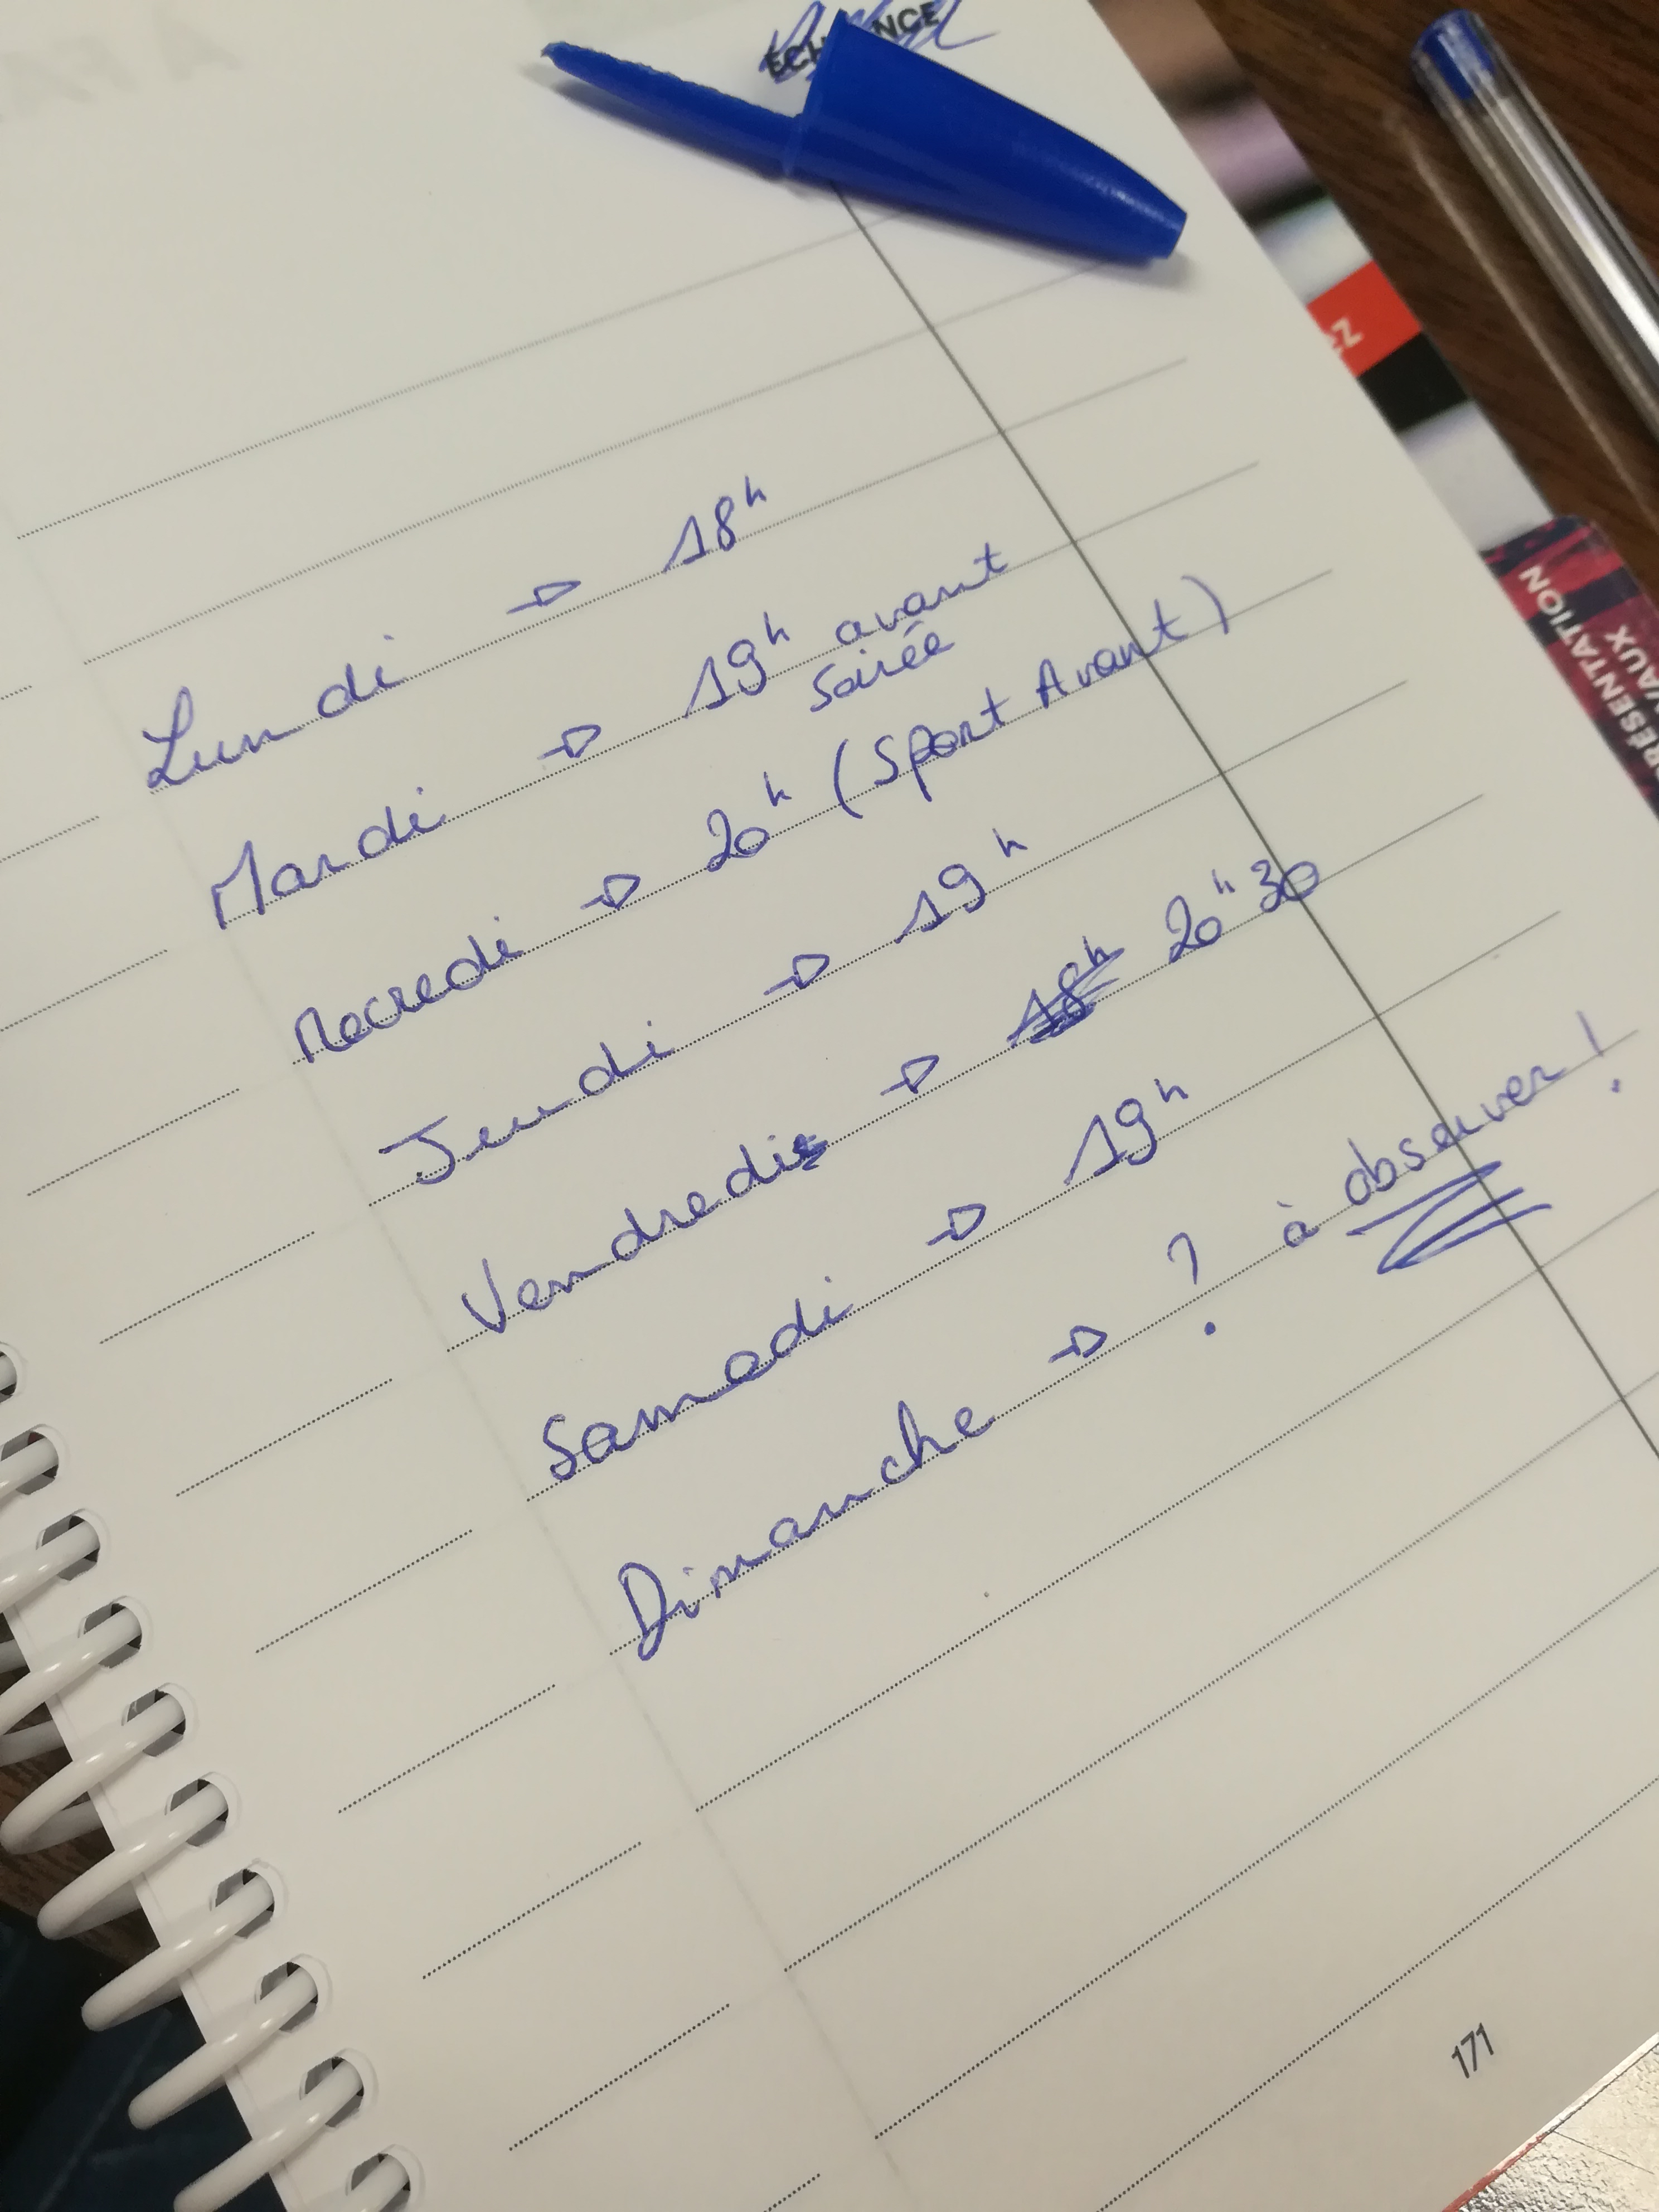 ÉCHÉANCE
Lundi → 18h
Mardi → 19h avant
soirée
Mecredi → 20h (Sport Avant)
Jeudi → 19h
Vendredi → 18h 20h30
Samedi → 19h
Dimanche → ? à observer !
171
PRÉSENTATION